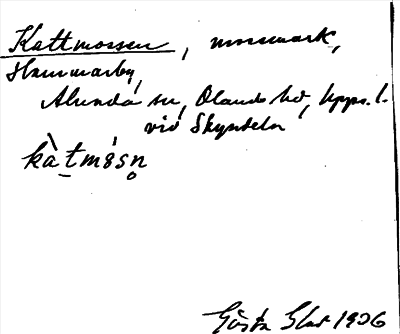 Kattmossen, mossmark,
Hammarby,
Alunda sn, Olands hd, Upps. l.
vid Skyndeln
kàt̠mós̠n̥
Gösta 1906